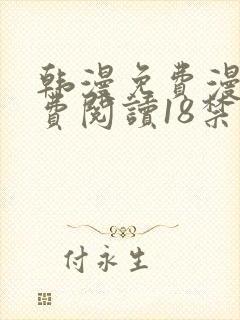 韩漫免费漫
費閱讀18禁
付永生